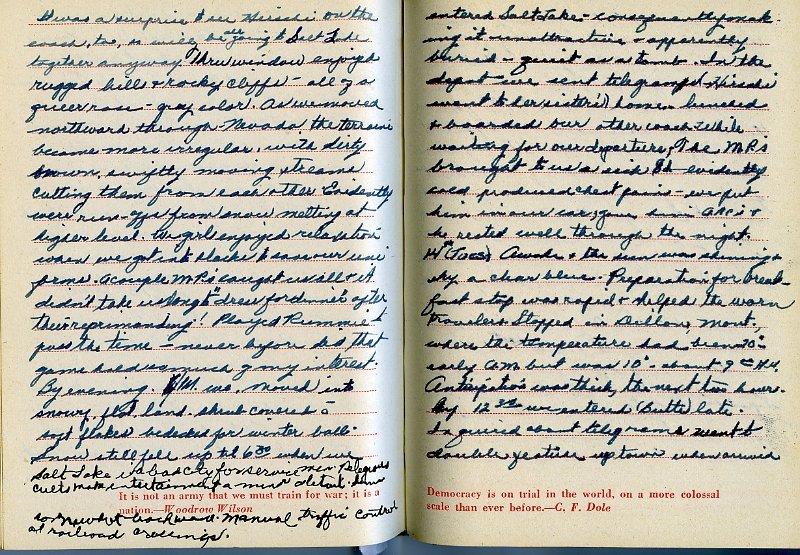 It was a surprise to see Hirschi on the
coach, too, so will be all going to Salt Lake
together anyway. Thru window enjoyed
rugged hills & rocky cliffs - all of a
queer rose - gray color. As we moved
northward through Nevada the terrain
became more irregular, with dirty
brown, swiftly moving streams
cutting them from each other. Evidently
were run-offs from snow melting at
higher level. We girls enjoyed relaxation
when we got into slacks to save our uni-
forms. A couple M.P.'s caught us all & it
didn't take us long to "dress for dinner" after
their reprimanding! Played Rummie to
pass the time - never before did that
game hold so much of my interest.
By evening we moved into
snowy, flat land, shrub covered &
soft flakes bedecked for winter ball.
Snow still fell up til 6:30 when we
Salt Lake is a bad city for service men. Religious
cults make entertaining a minor detail.
somewhat backward. Manual traffic control
at railroad crossings.
It is not an army that we must train for war; it is a
nation.—Woodrow Wilson
entered Salt Lake - consequently mak-
ing it unattractive & apparently
buried - quiet as a tomb. In the
depot we sent telegrams, Hirschi
went to her sister's home, lunched
& boarded our other coach. While
waiting for our departure, the M.P.s
brought to us a sick evidently
cold produced chest pains - we put
him in our car, gave him APC's &
he rested well through the night.
14th (Tues) Awoke & the sun was shining &
sky a clear blue. Preparation for break-
fast stop was roped & helped the worn
travelers. Stopped in Dillon, Mont.,
where the temperature had been 20°-
early AM but was 10° - about 9
Anticipation was thick, the next two hours.
By 12:30 we entered (Butte) late.
Inquired about telegrams & went to
double festive uptown when arrived
Democracy is on trial in the world, on a more colossal
scale than ever before.—C. F. Dole